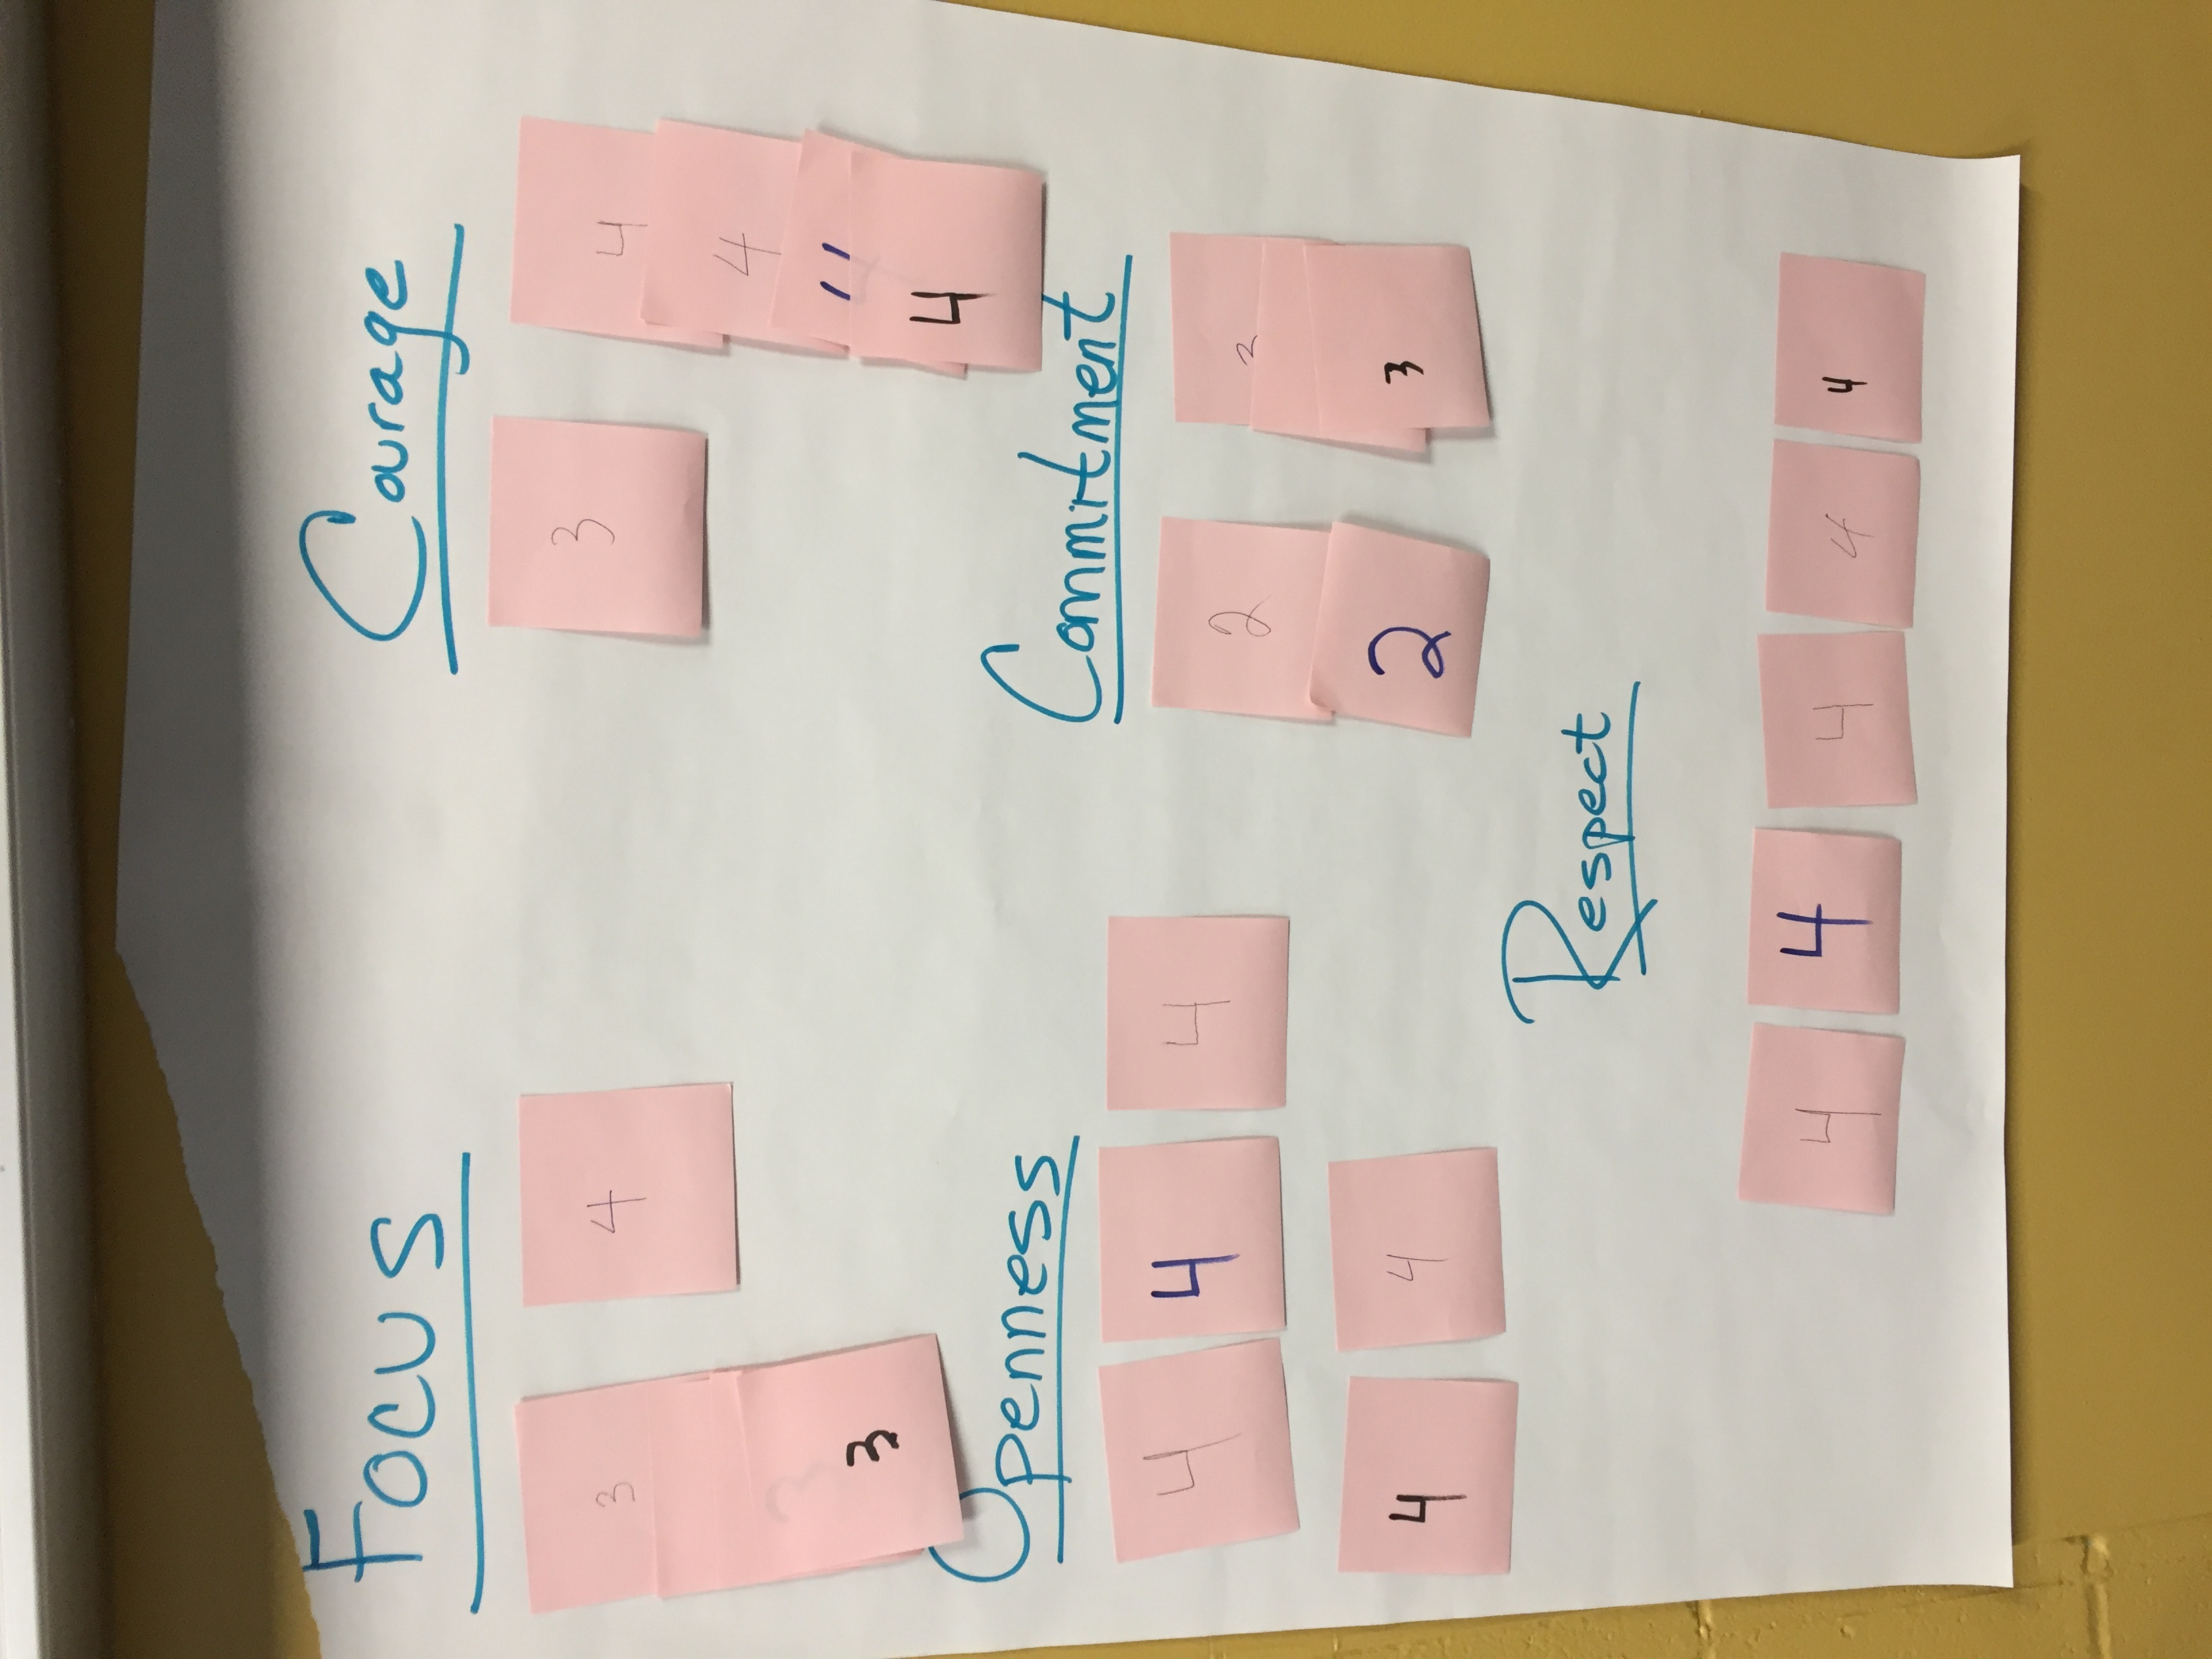 Focus
3
4
3
3
Courage
3
4
4
4
4
Openness
4
4
4
4
4
Commitment
2
2
3
Respect
4
4
4
4
4